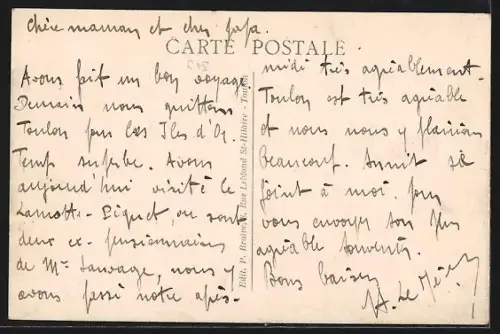 Chère maman et cher papa.
CARTE POSTALE
Avons fait un bon voyage
Demain nous quittons
Toulon pour les Iles d'Or.
Temps superbe. Avons
aujourd'hui visité le
Lamotte-Picquet, où sont
deux ex-pensionnaires
de Mr Sauvage, nous y
avons passé notre après-
midi très agréablement.
Toulon est très agréable
et nous nous y plaisons
beaucoup. Annit se
joint à moi pour
vous envoyer son plus
agréable souvenir.
Bons baisers
Edit. P. Rue Leblond St-Hilaire - Toulon